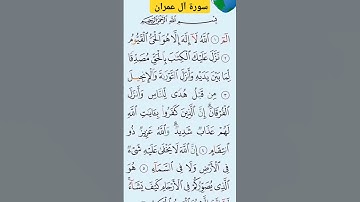 سورة آل عمران
بِسْمِ اللَّهِ الرَّحْمَٰنِ الرَّحِيمِ
الٓمٓ ١ اللَّهُ لَآ إِلَٰهَ إِلَّا هُوَ الْحَيُّ الْقَيُّومُ
٢ نَزَّلَ عَلَيْكَ الْكِتَٰبَ بِالْحَقِّ مُصَدِّقًا
لِّمَا بَيْنَ يَدَيْهِ وَأَنزَلَ التَّوْرَىٰةَ وَالْإِنجِيلَ
٣ مِن قَبْلُ هُدًى لِّلنَّاسِ وَأَنزَلَ
الْفُرْقَانَ إِنَّ الَّذِينَ كَفَرُوا بِـَٔايَٰتِ اللَّهِ
لَهُمْ عَذَابٌ شَدِيدٌ وَاللَّهُ عَزِيزٌ ذُو
انتِقَامٍ ٤ إِنَّ اللَّهَ لَا يَخْفَىٰ عَلَيْهِ شَىْءٌ
فِى الْأَرْضِ وَلَا فِى السَّمَآءِ ٥ هُوَ
الَّذِى يُصَوِّرُكُمْ فِى الْأَرْحَامِ كَيْفَ يَشَآءُ